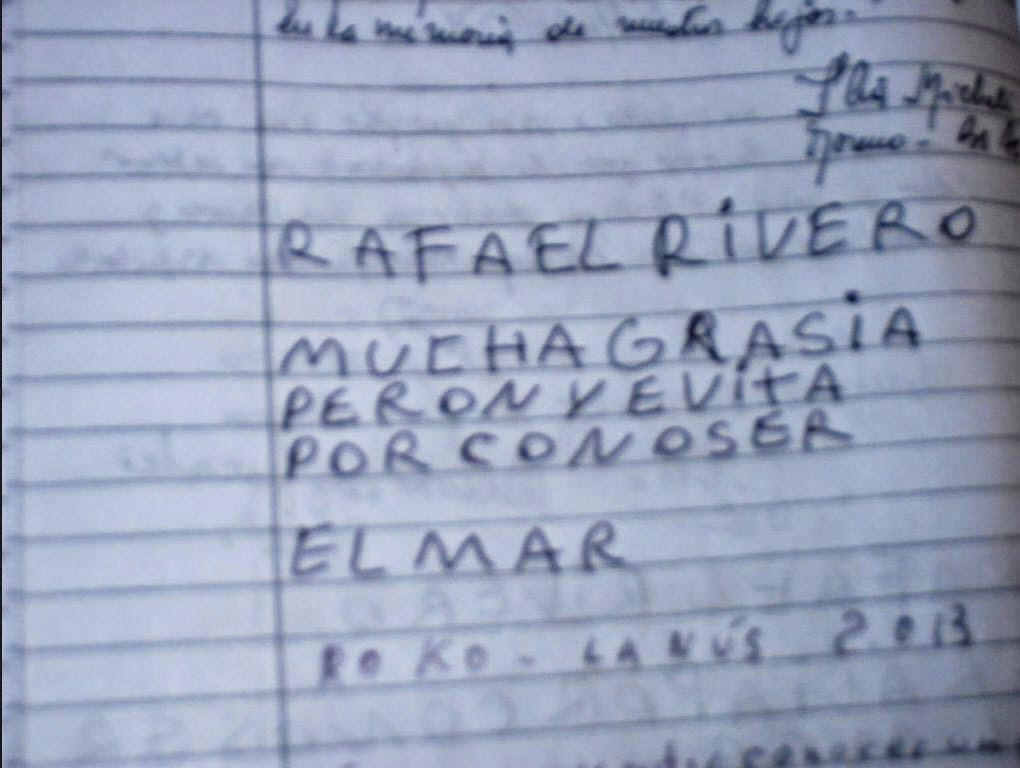 en la memoria de nuestros hijos.
RAFAEL RIVERO
MUCHA GRASIA
PERON Y EVITA
POR CONOSER
EL MAR
ROKO - LANÚS 2013
conocer un